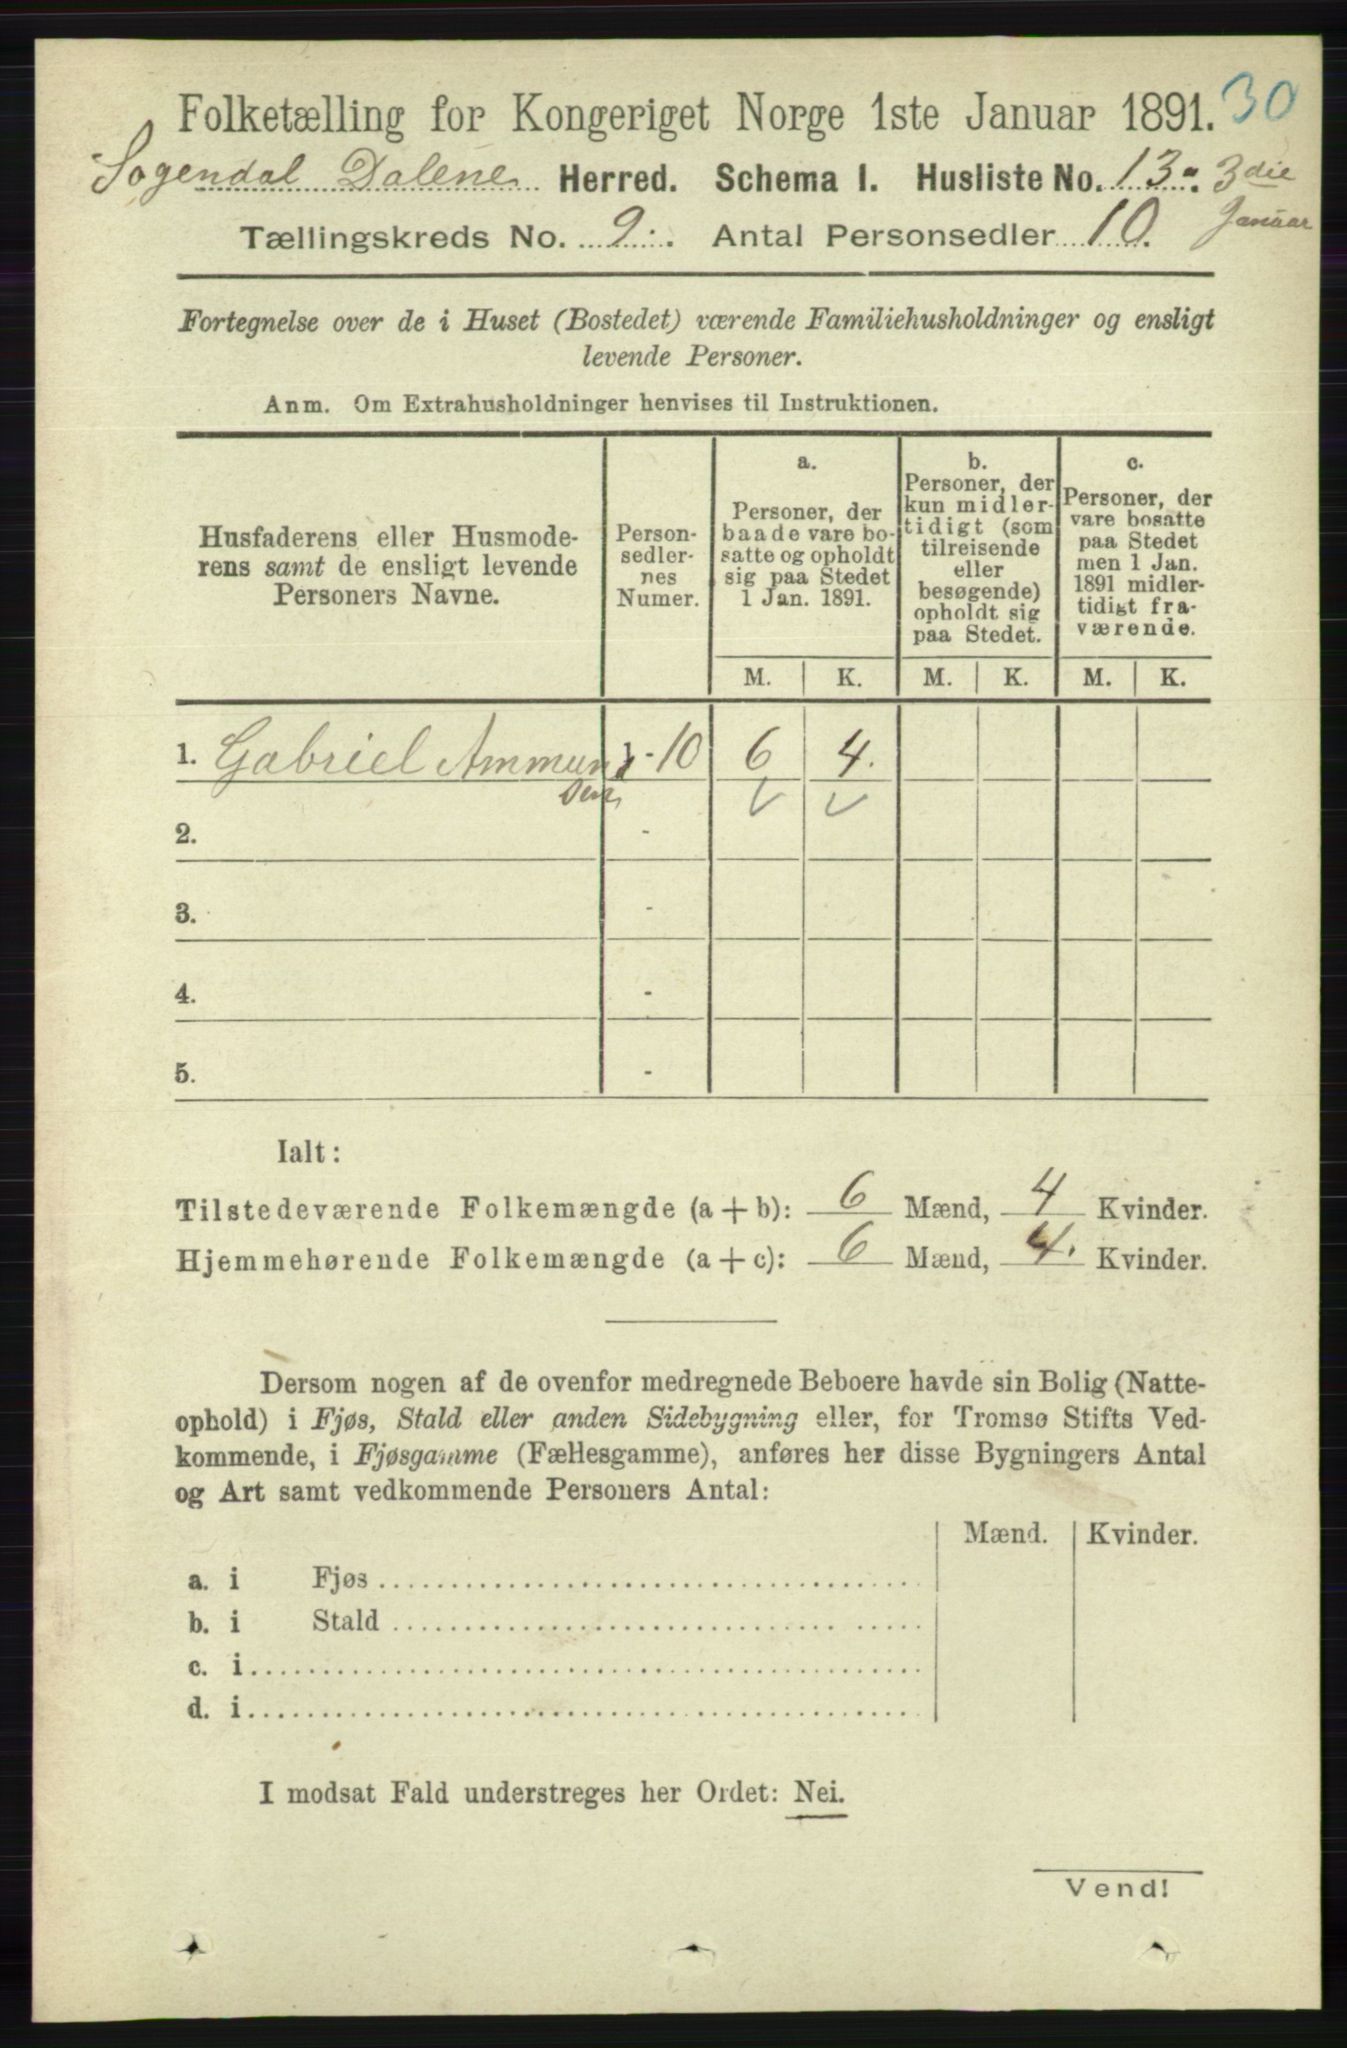 Folketælling for Kongeriget Norge 1ste Januar 1891. 30
Sogendal Dalene Herred. Schema I. Husliste No. 13. 3die
Januar
Tællingskreds No. 9. Antal Personsedler 10.
Fortegnelse over de i Huset (Bostedet) værende Familiehusholdninger og ensligt
levende Personer.
Anm. Om Extrahusholdninger henvises til Instruktionen.
Husfaderens eller Husmode-
rens samt de ensligt levende
Personers Navne.
Person-
sedler-
nes
Numer.
a.
Personer, der
baade vare bo-
satte og opholdt
sig paa Stedet
1 Jan. 1891.
b.
Personer, der
kun midler-
tidigt (som
tilreisende
eller
besøgende)
opholdt sig
paa Stedet.
c.
Personer, der
vare bosatte
paa Stedet
men 1 Jan.
1891 midler-
tidigt fra-
værende.
M. K. M. K. M. K.
1. Gabriel Ammund 1-10 6 4.
sen
2. -
3. -
4. -
5. -
Ialt:
Tilstedeværende Folkemængde (a + b): 6 Mænd, 4 Kvinder.
Hjemmehørende Folkemængde (a + c): 6 Mænd, 4. Kvinder.
Dersom nogen af de ovenfor medregnede Beboere havde sin Bolig (Natte-
ophold) i Fjøs, Stald eller anden Sidebygning eller, for Tromsø Stifts Ved-
kommende, i Fjøsgamme (Fællesgamme), anføres her disse Bygningers Antal
og Art samt vedkommende Personers Antal:
Mænd. Kvinder.
a. i Fjøs
b. i Stald
c. i
d. i
I modsat Fald understreges her Ordet: Nei.
Vend!